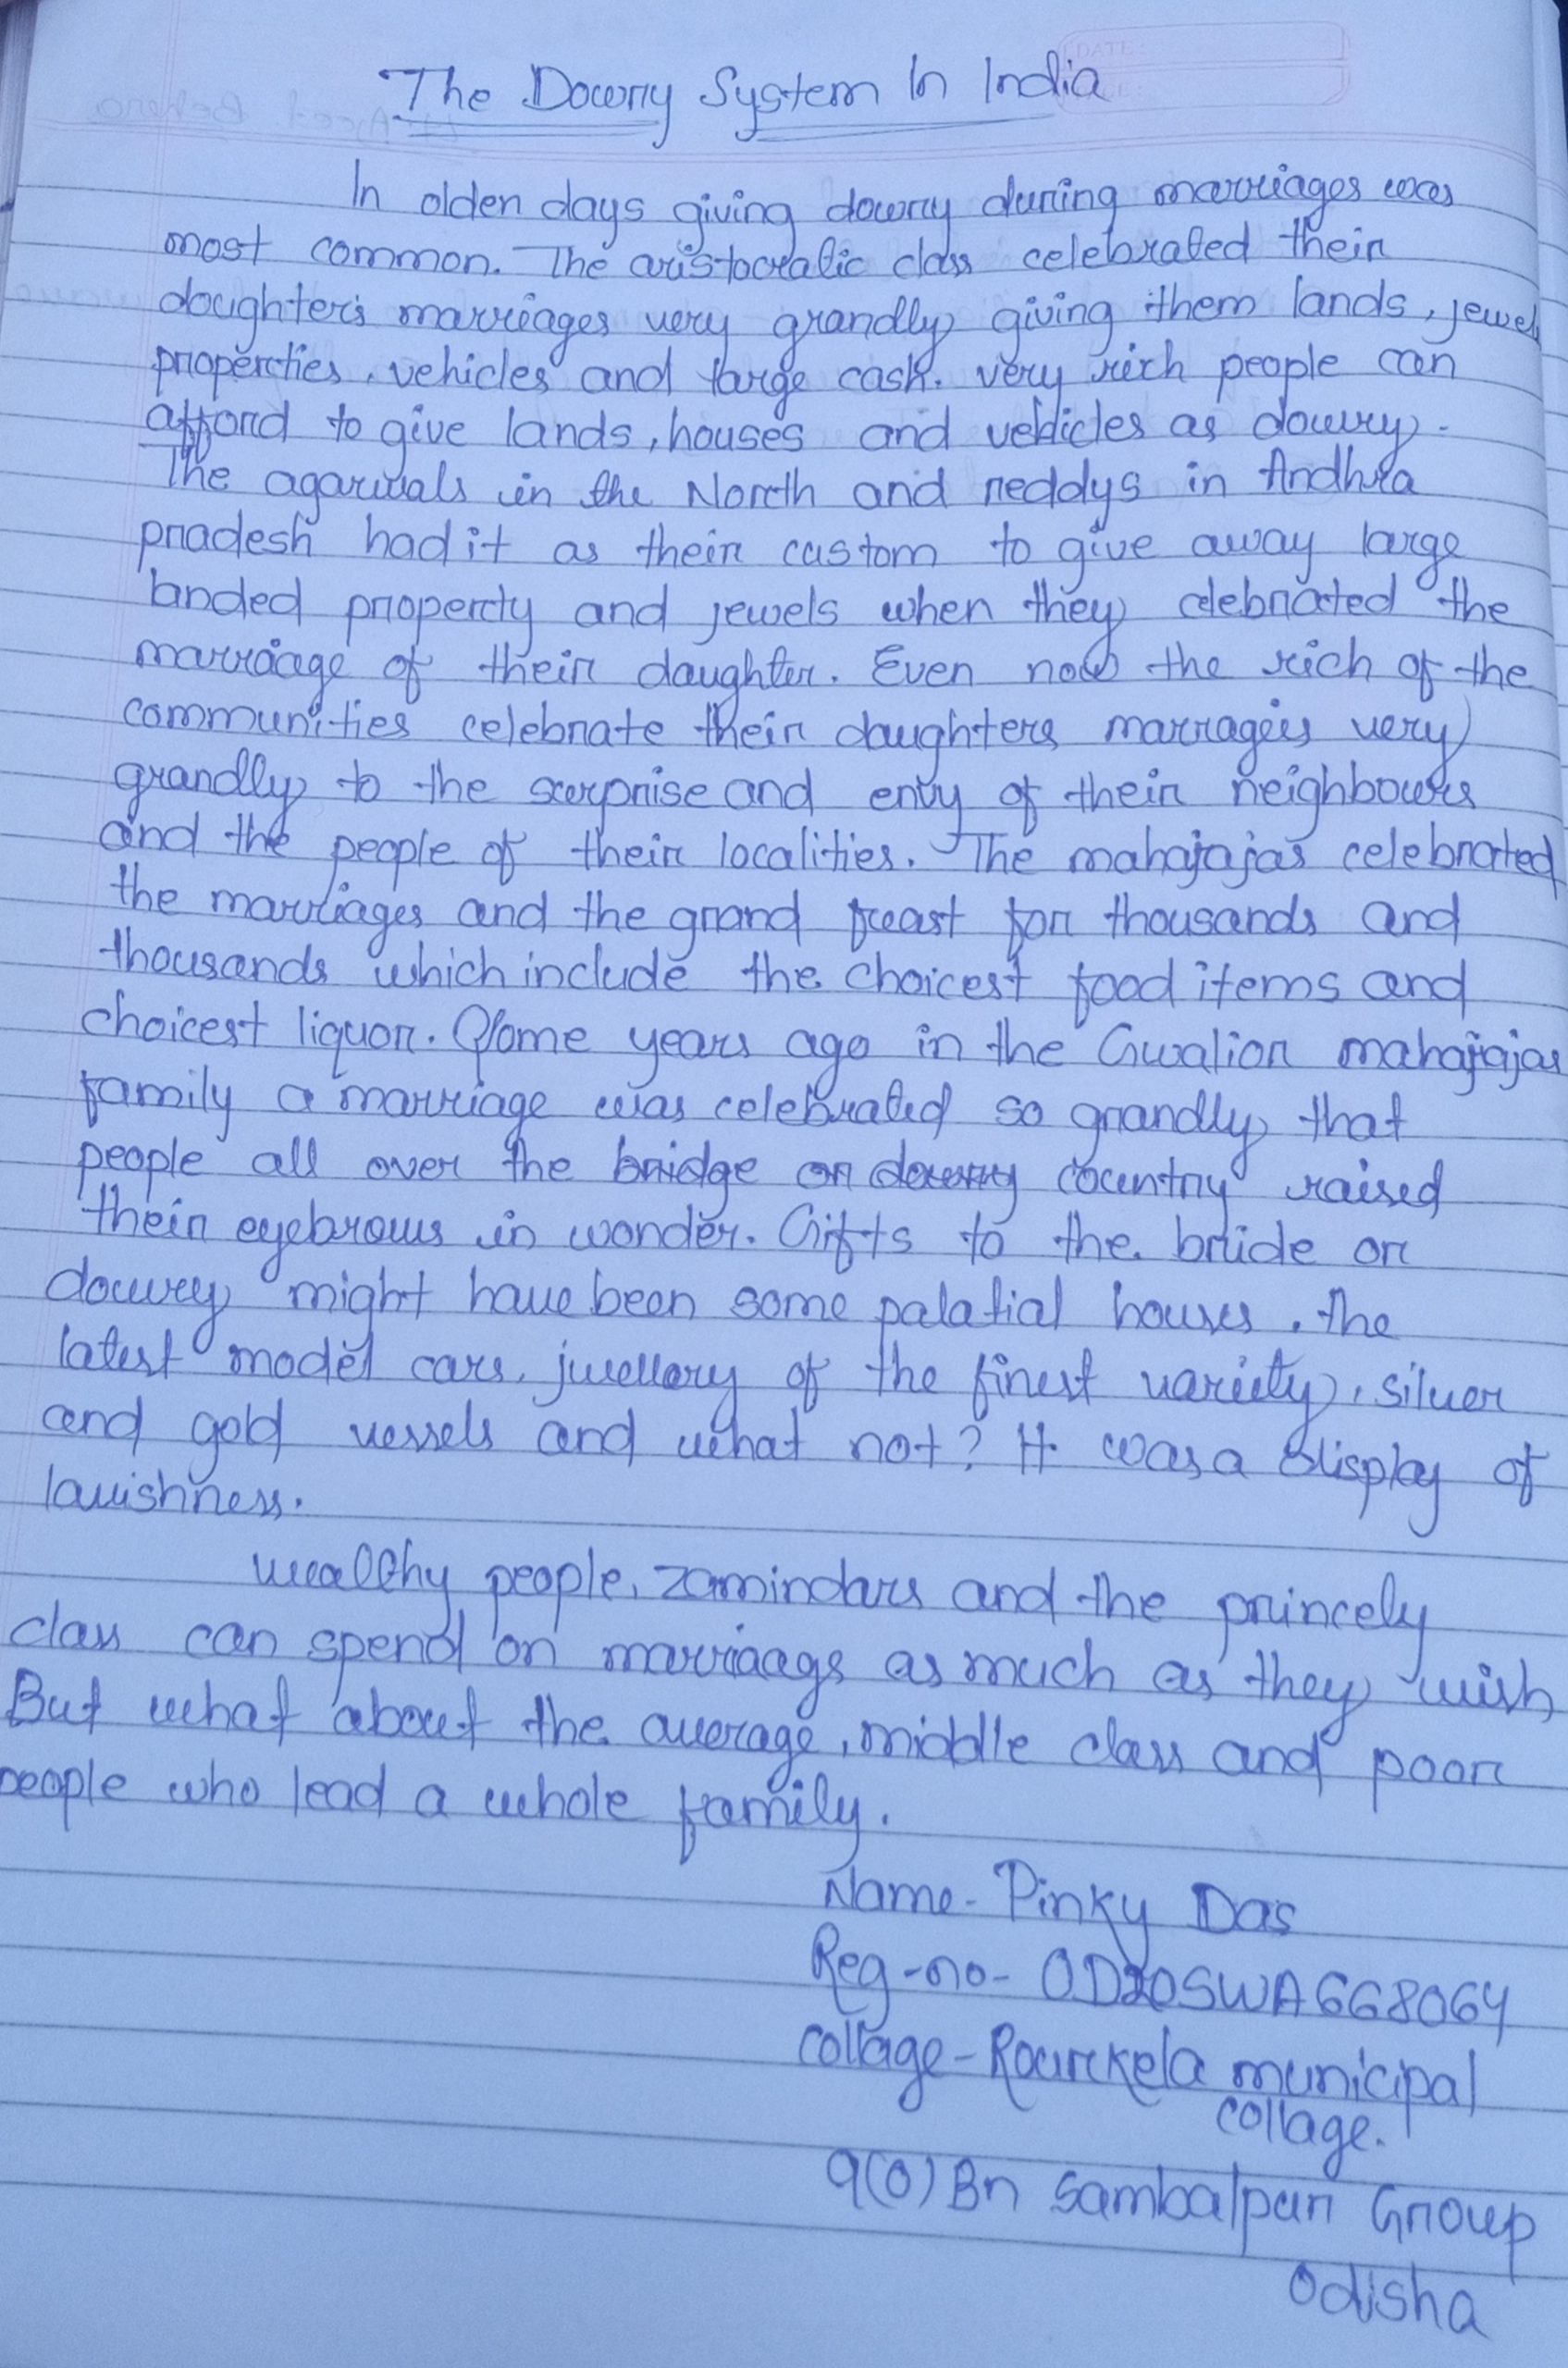 The Dowry System In India
In olden days giving dowry during marriages was
most common. The aristocratic class celebrated their
doughter's marriages very grandly giving them lands, jewels
properties, vehicles and large cash. very rich people can
afford to give lands, houses and vehicles as dowry.
The agarwals in the North and reddys in Andhra
pradesh had it as their custom to give away large
landed property and jewels when they celebrated the
marriage of their daughter. Even now the rich of the
communities celebrate their daughters marrages very
grandly to the surprise and envy of their neighbours
and the people of their localities. The mahajajas celebrated
the marriages and the grand feast for thousands and
thousands which include the choicest food items and
choicest liquor. Some years ago in the Gwalior mahajajas
family a marriage was celebrated so grandly that
people all over the bridge or dowry country raised
their eyebrows in wonder. Gifts to the bride or
dowry might have been some palatial houses, the
latest model cars, jwellery of the finest variety, silver
and gold vessels and what not? It was a display of
lavishness.
wealthy people, zamindars and the princely
class can spend on marriaags as much as they wish
But what about the average, middle class and poor
people who lead a whole family.
Name - Pinky Das
Reg-no- OD20SWA668064
collage - Rourkela municipal
collage.
9(O) Bn Sambalpur Group
Odisha